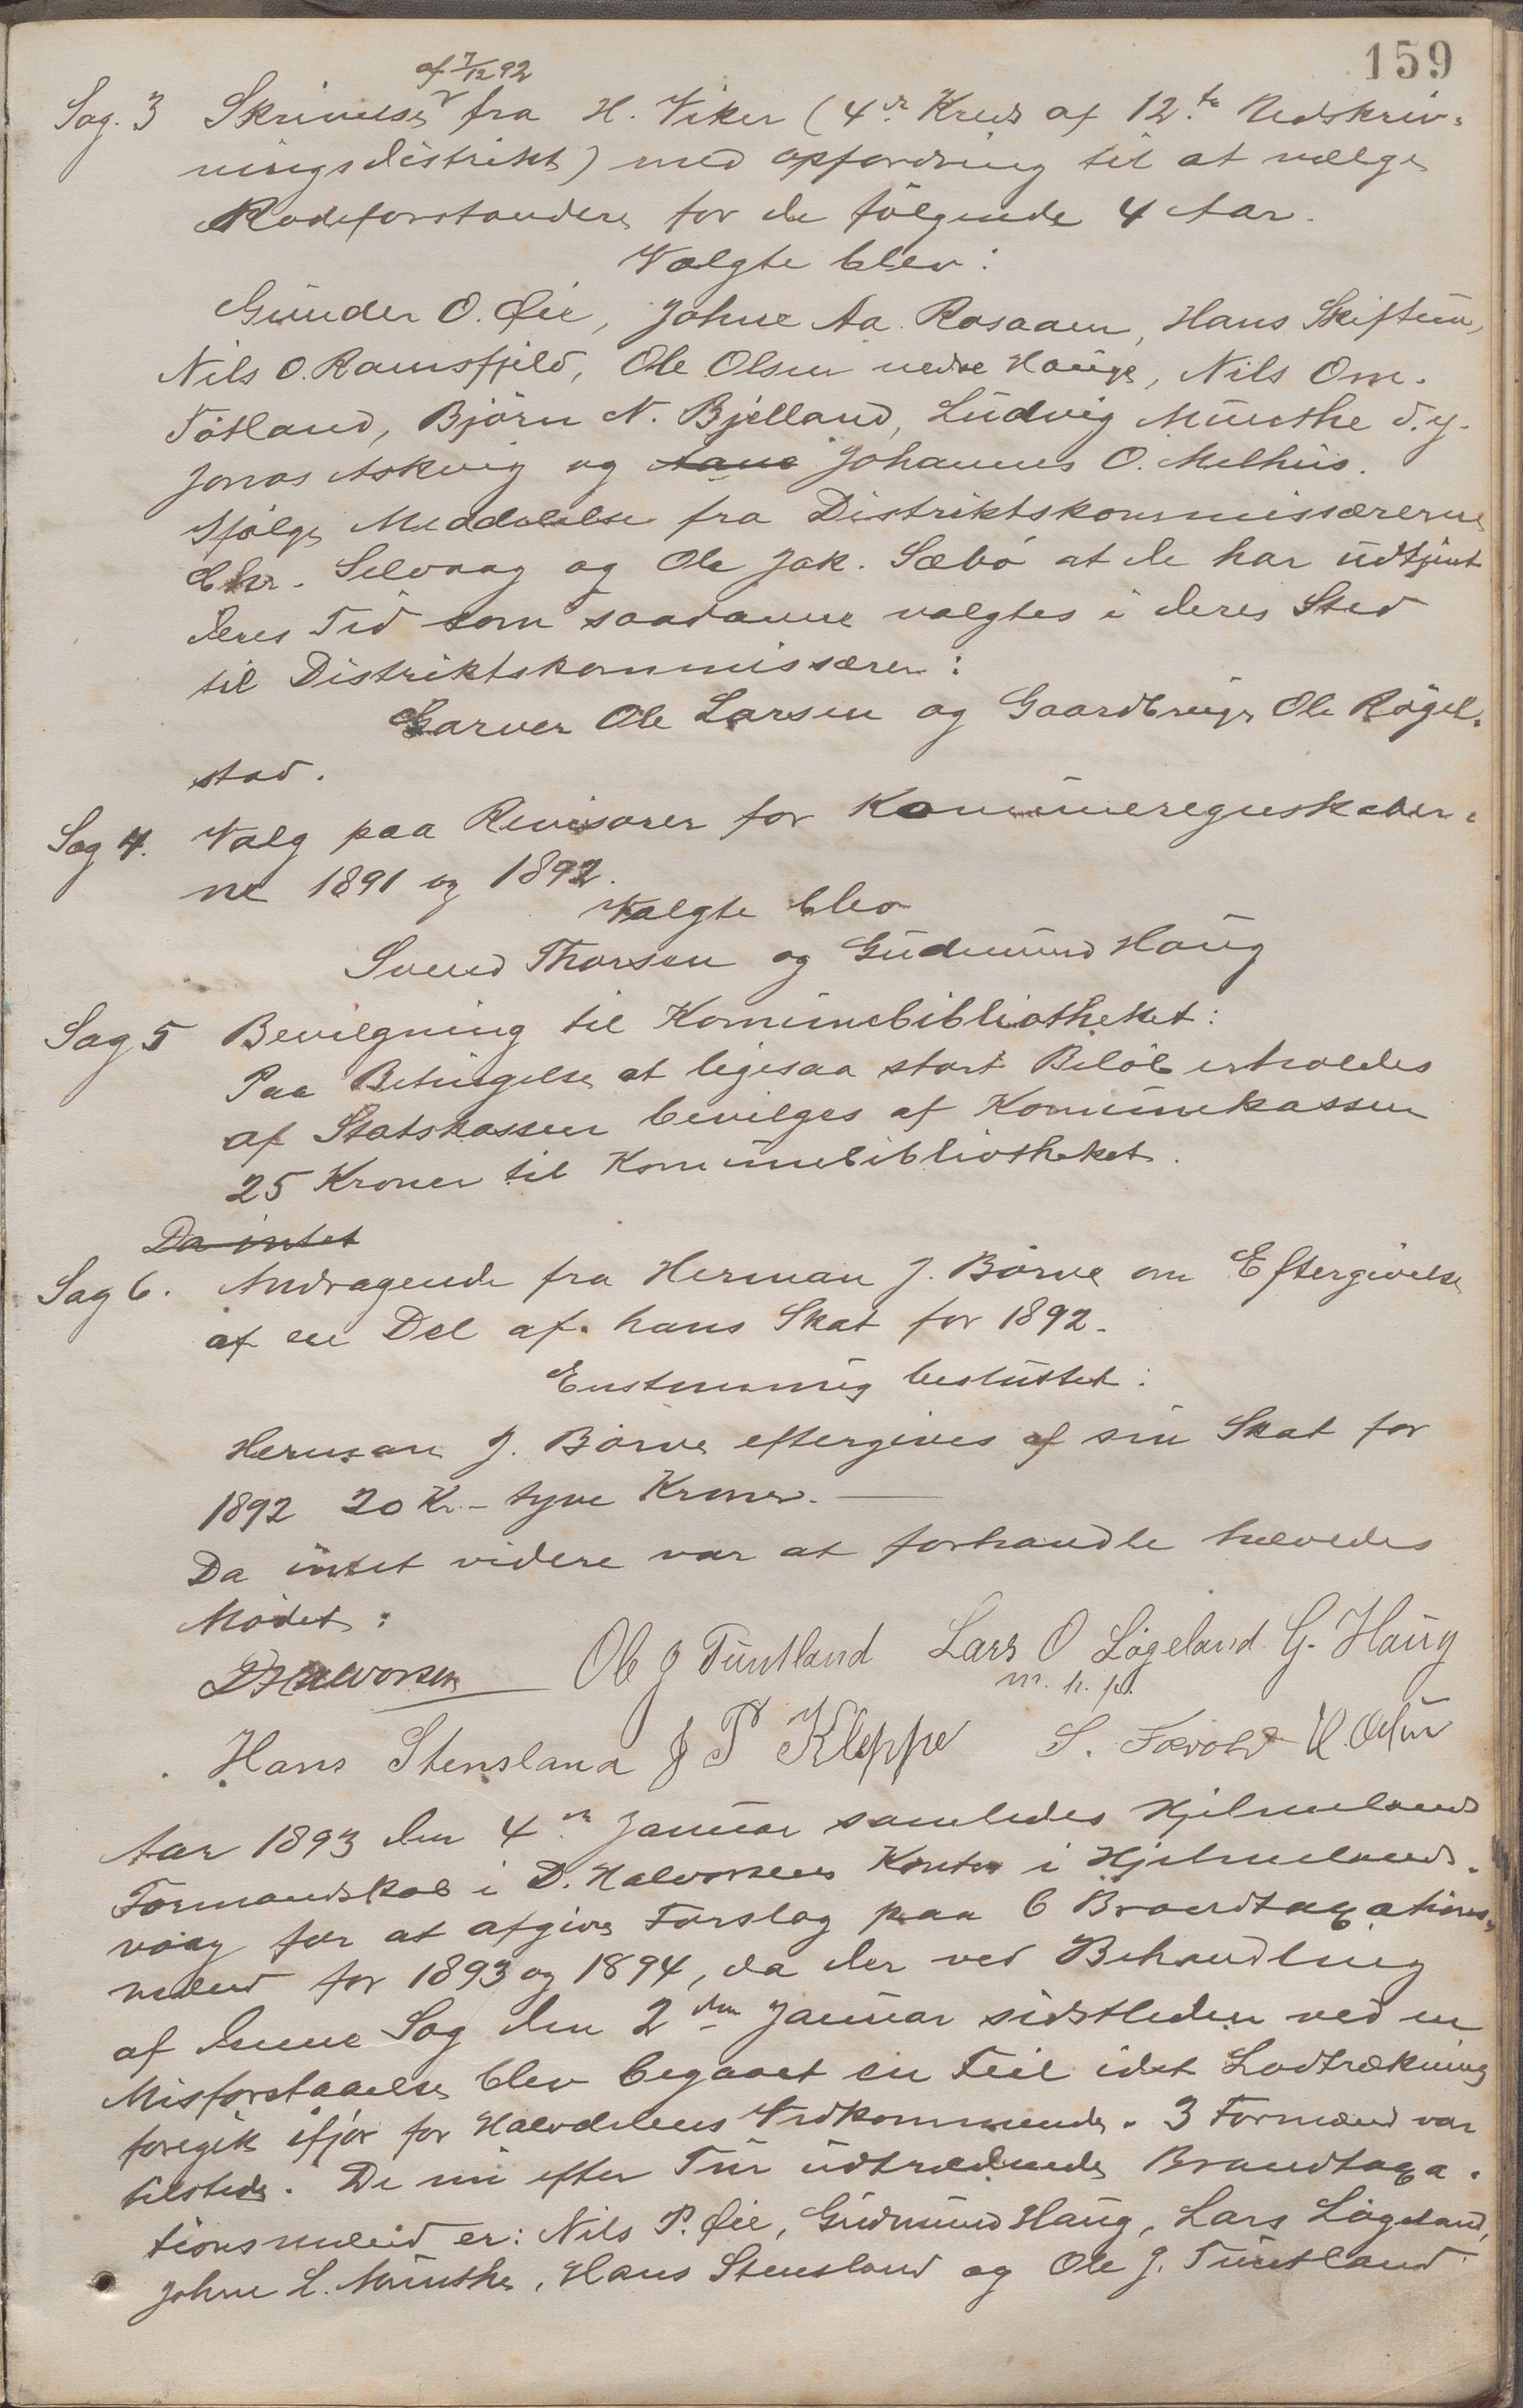 159
af 7/12 92
Sag. 3 Skrivelse fra H. Viker (4de Kreds af 12te Udskriv-
ningsdistrikt) med opfordring til at vælge
Rodeforstandere for de følgende 4 Aar.
Valgte blev:
Gunder O. Øie, Johne Aa. Rasaaen, Hans Skiftun,
Nils O. Ramsfjeld, Ole Olsen nedre Hauge, Nils Om.
Tøtland, Bjørn N. Bjelland, Ludvig Munthe d.y.
Jonas Askvig og Aane Johannes O. Melhus.
Ifølge Meddelelse fra Distriktskommissærerne
Chr. Selvaag og Ole Jak. Sæbø at de har udtjent
deres Tid som saadanne valgtes i deres Sted
til Distriktskommissærer:
Garver Ole Larsen og Gaardbruger Ole Røgel-
stad.
Sag 4. Valg paa Revisorer for Kommuneregnskaber-
ne 1891 og 1892.
Valgte blev
Svend Thorsen og Gudmund Haug
Sag 5 Bevilgning til Kommunebibliotheket:
Paa Betingelse at ligesaa stort Beløb erholdes
af Statskassen bevilges af Kommunekassen
25 Kroner til Kommunebibliotheket.
Da intet
Sag 6. Andragende fra Herman J. Børve om Eftergivelse
af en Del af hans Skat for 1892.
Enstemmig besluttet:
Herman J. Børve eftergives af sin Skat for
1892 20 Kr. - tyve Kroner.
Da intet videre var at forhandle hævedes
Mødet:
D Halvorsen Ole J Tuntland Lars O Løgeland G. Haug
m. h. p.
Hans Stensland J P Kleppe S. Fævold H. Olsen
Aar 1893 den 4de Januar samledes Hjelmelands
Formandskab i D. Halvorsens Kontor i Hjelmelands-
vaag for at afgive Forslag paa 6 Brandtaxations-
mænd for 1893 og 1894, da der ved Behandling
af denne Sag den 2den Januar sidstleden ved en
Misforstaaelse blev begaaet en Feil idet Lodtrækning
foregik ifjor for Halvdelens Vedkommende. 3 Formænd var
tilstede. De nu efter Tur udtrædende Brandtaxa-
tionsmænd er: Nils P. Øie, Gudmund Haug, Lars Løgeland,
Johne L. Munthe, Hans Stensland og Ole J. Tuntland.